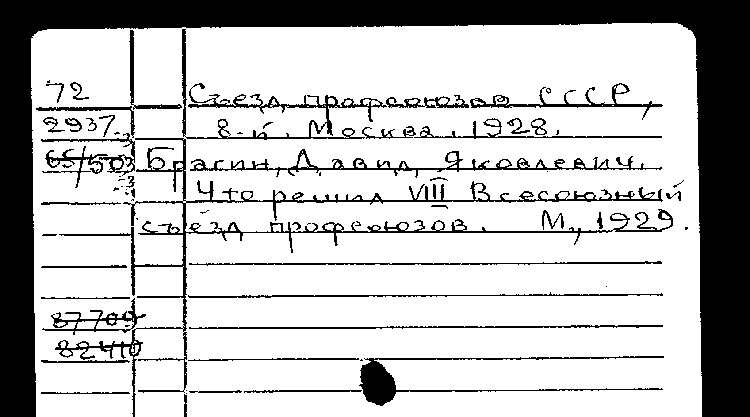 72
Съезд профсоюзов СССР,
2937
8-й. Москва. 1928.
65/503
Брагин, Давид Яковлевич.
Что решил VIII Всесоюзный
съезд профсоюзов. М., 1929.
87709
82410